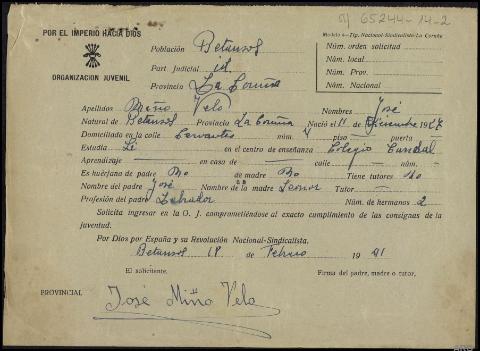 65244-14-2
POR EL IMPERIO HACIA DIOS
ORGANIZACION JUVENIL
Modelo 4-Tip. Nacional-Sindicalista-La Coruña
Población Betanzos
Part. Judicial id.
Provincia La Coruña
Núm. orden solicitud
Núm. local
Núm. Prov.
Núm. Nacional
Apellidos Miño Velo Nombres José
Natural de Betanzos Provincia La Coruña Nació el 11 de Diciembre 1927
Domiciliado en la calle Cervantes núm. piso puerta
Estudia Si en el centro de enseñanza Colegio
Aprendizaje en casa de calle núm.
Es huérfano de padre No de madre No Tiene tutores No
Nombre del padre José Nombre de la madre Leonor Tutor
Profesión del padre Labrador Núm. de hermanos 2
Solicita ingresar en la O. J. comprometiéndose al exacto cumplimiento de las consignas de la
juventud.
Por Dios por España y su Revolución Nacional-Sindicalista.
Betanzos 18 de Febrero 1941
El solicitante. Firma del padre, madre o tutor,
PROVINCIAL
José Miño Velo